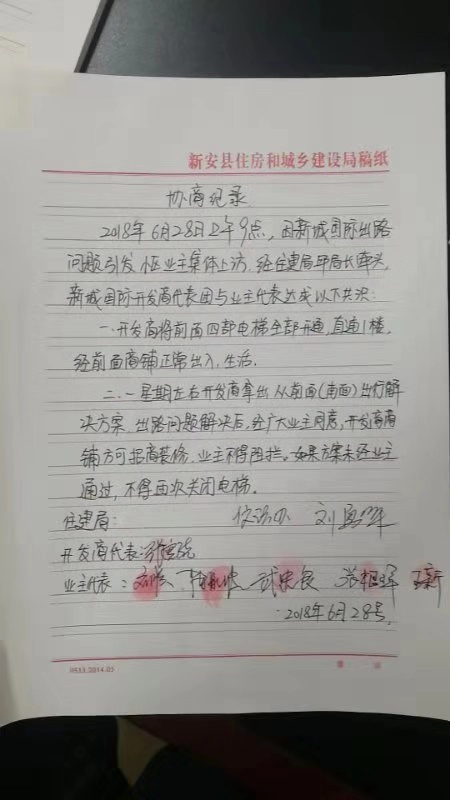 新安县住房和城乡建设局稿纸
协商纪录
2018年6月28日上午9点，因新城国际出路
问题引发小区业主集体上访，经住建局 局长牵头，
新城国际开发商代表团与业主代表达成以下共识：
一.开发商将前面四部电梯全部开通，直通1楼，
经前面商铺正常出入，生活。
二.一星期左右开发商拿出从前面(南面)出行解
决方案，出路问题解决后，经广大业主同意，开发商商
铺方可招商装修，业主不得阻拦。如果方案未经业主
通过，不得再次关闭电梯。
住建局：
开发商代表：
业主代表：
2018年6月28号